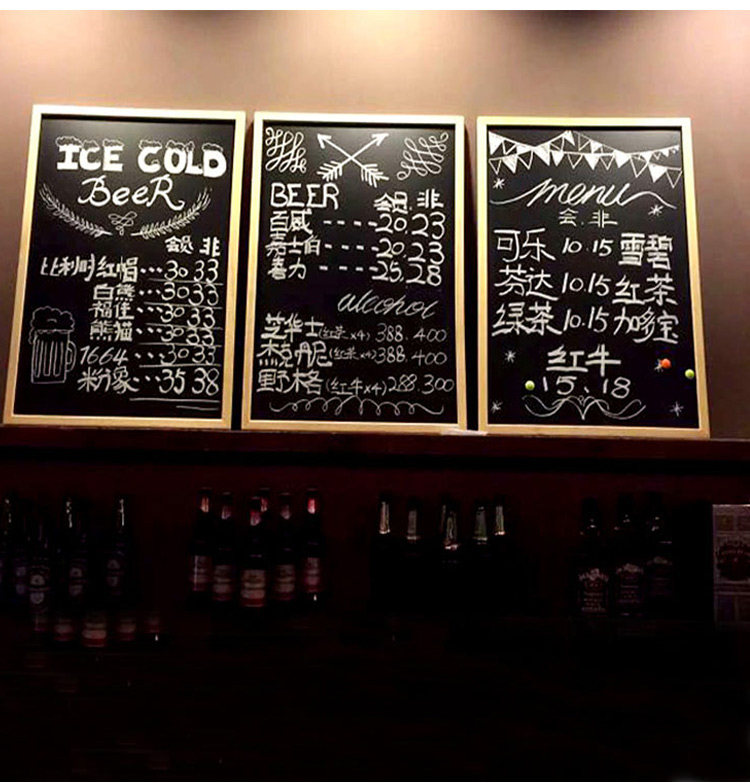 ICE COLD
BeeR
会员 非
比利时红帽···30 33
白熊···30 33
福佳···30 33
熊猫···30 33
1664···30 33
粉象···35 38
BEER 会员 非
百威----20 23
嘉士伯----20 23
喜力----25 28
alcohol
芝华士(红茶x4)388.400
杰克丹尼(红茶x4)388.400
野格(红牛x4)288.300
menu
会.非
可乐 10.15 雪碧
芬达 10.15 红茶
绿茶 10.15 加多宝
红牛
15.18